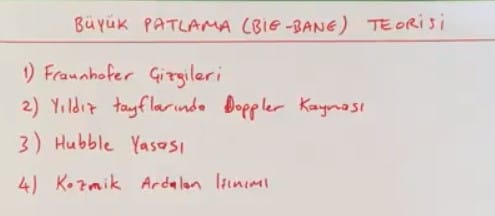 BÜYÜK PATLAMA (BIG-BANG) TEORİSİ
1) Fraunhofer Çizgileri
2) Yıldız tayflarında Doppler Kayması
3) Hubble Yasası
4) Kozmik Ardalan Işınımı